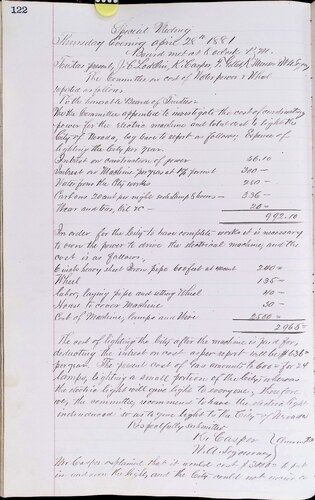 122
Special Meeting
Thursday Evening April 28th 1881
Board met at 8 oclock P.M.
Trustees present,
The Committee on cost of Water power & Wheel
reported as follows.
To the honorable Board of Trustees
We the Committee appointed to investigate the cost of
power for the electric machine and total cost to light the
City of beg leave to report as follows, Expense of
lighting the City per year.
Interest on construction of power 56.10
Interest on Machine per year at percent 300 —
Water from the City works 250 —
Carbons 20 cent per night 336 —
Wear and tear, Oil &c — 20 —
992.10
In order for the City to have complete works it is necessary
to own the power to drive the electrical machine, and the
cost is as follows,
6 inch heavy sheet Iron pipe 600 feet at 240 =
Wheel 135 —
Labor, laying pipe and setting Wheel 40 —
House to cover Machine 50 —
Cost of Machine, lamps and Wire 2500 =
2965 =
The cost of lighting the City after the machine is paid for,
deducting the interest on cost as per report will be $636 =
per year. The present cost of Gas amounts to 600 = for 24
lamps, lighting a small portion of the City; whereas
the electric light will give light to everyone, therefore
we, the committee, recommend to have the electric light
introduced so as to give light to the City of
Respectfully submitted
R. Casper
Committee
Mr Casper explained that it would cost $ to put
in and own the lights, and the City could not